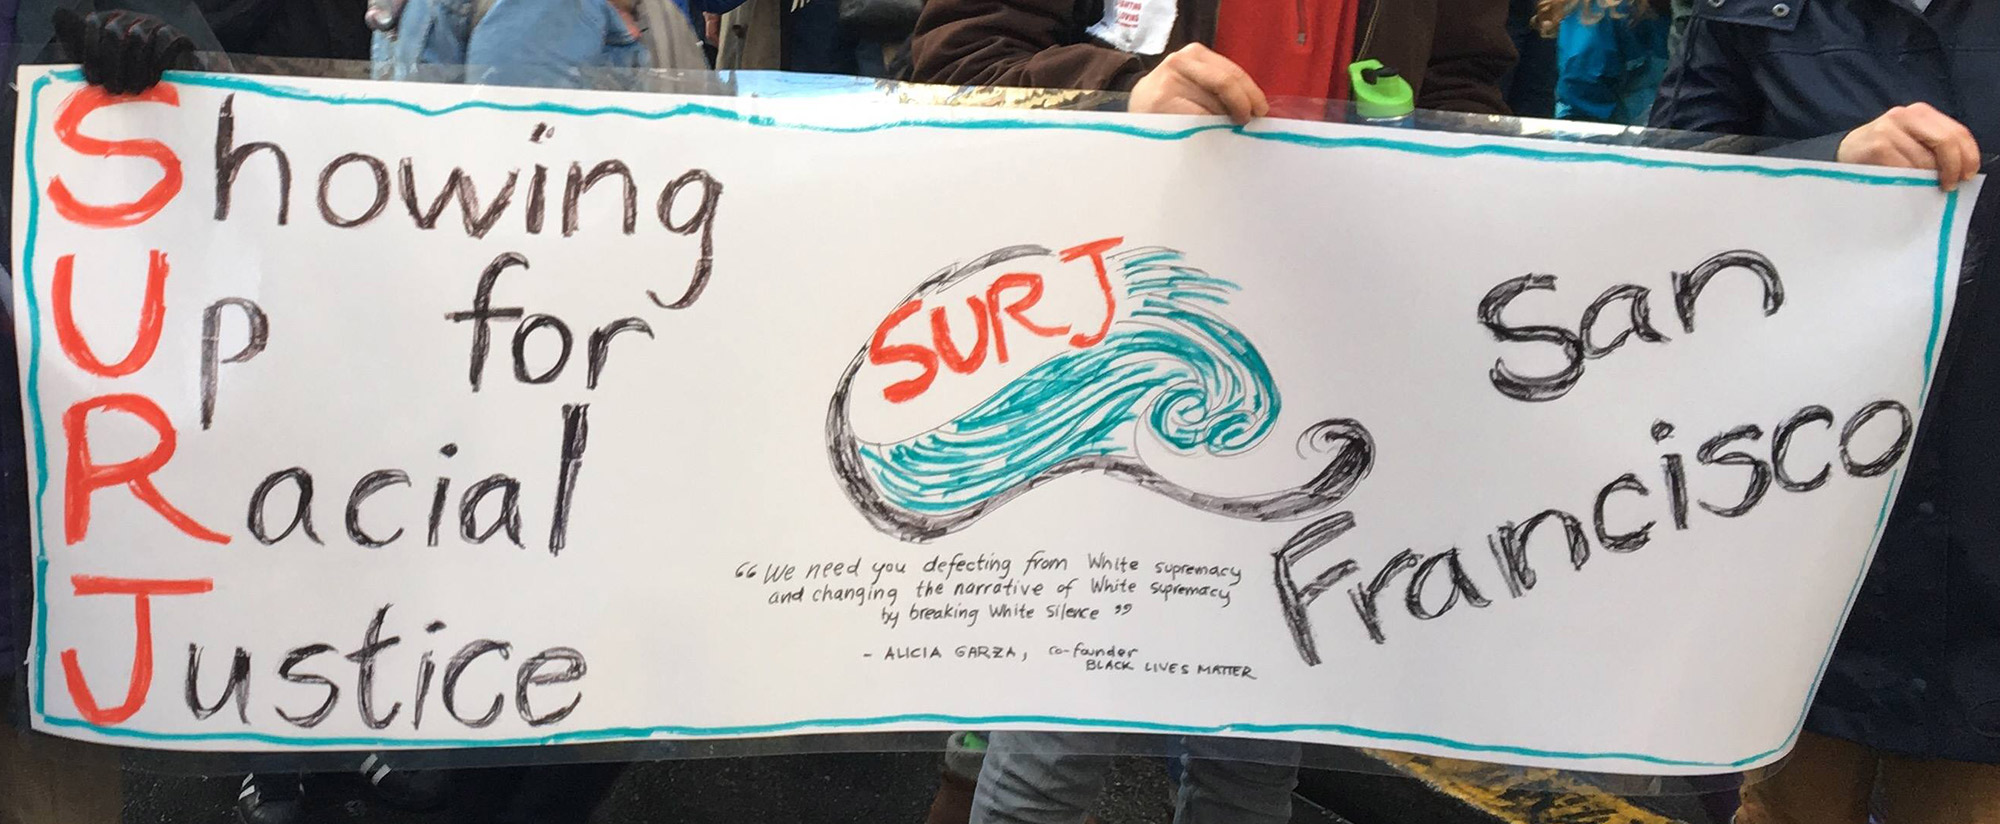 Showing
Up for
Racial
Justice
SURJ
“We need you defecting from White supremacy
and changing the narrative of White supremacy
by breaking White Silence”
- ALICIA GARZA, co-founder
BLACK LIVES MATTER
San
Francisco